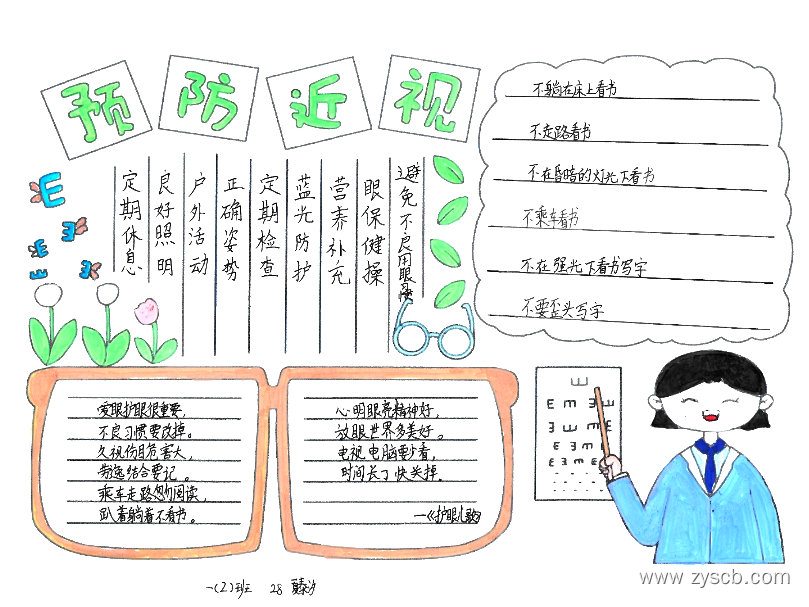 预防近视
定期休息
良好照明
户外活动
正确姿势
定期检查
蓝光防护
营养补充
眼保健操
避免不良用眼习惯
不躺在床上看书
不走路看书
不在昏暗的灯光下看书
不乘车看书
不在强光下看书写字
不要歪头写字
爱眼护眼很重要,
不良习惯要改掉。
久视伤目危害大,
劳逸结合要记。
乘车走路忽阅读,
趴着躺着不看书。
心明眼亮精神好,
放眼世界多美好。
电视电脑要少看,
时间长了快关掉.
—《护眼儿歌》
E
E
E
E
E
E m E
E Ǝ m E
一(2)班 28
www.zyscb.com